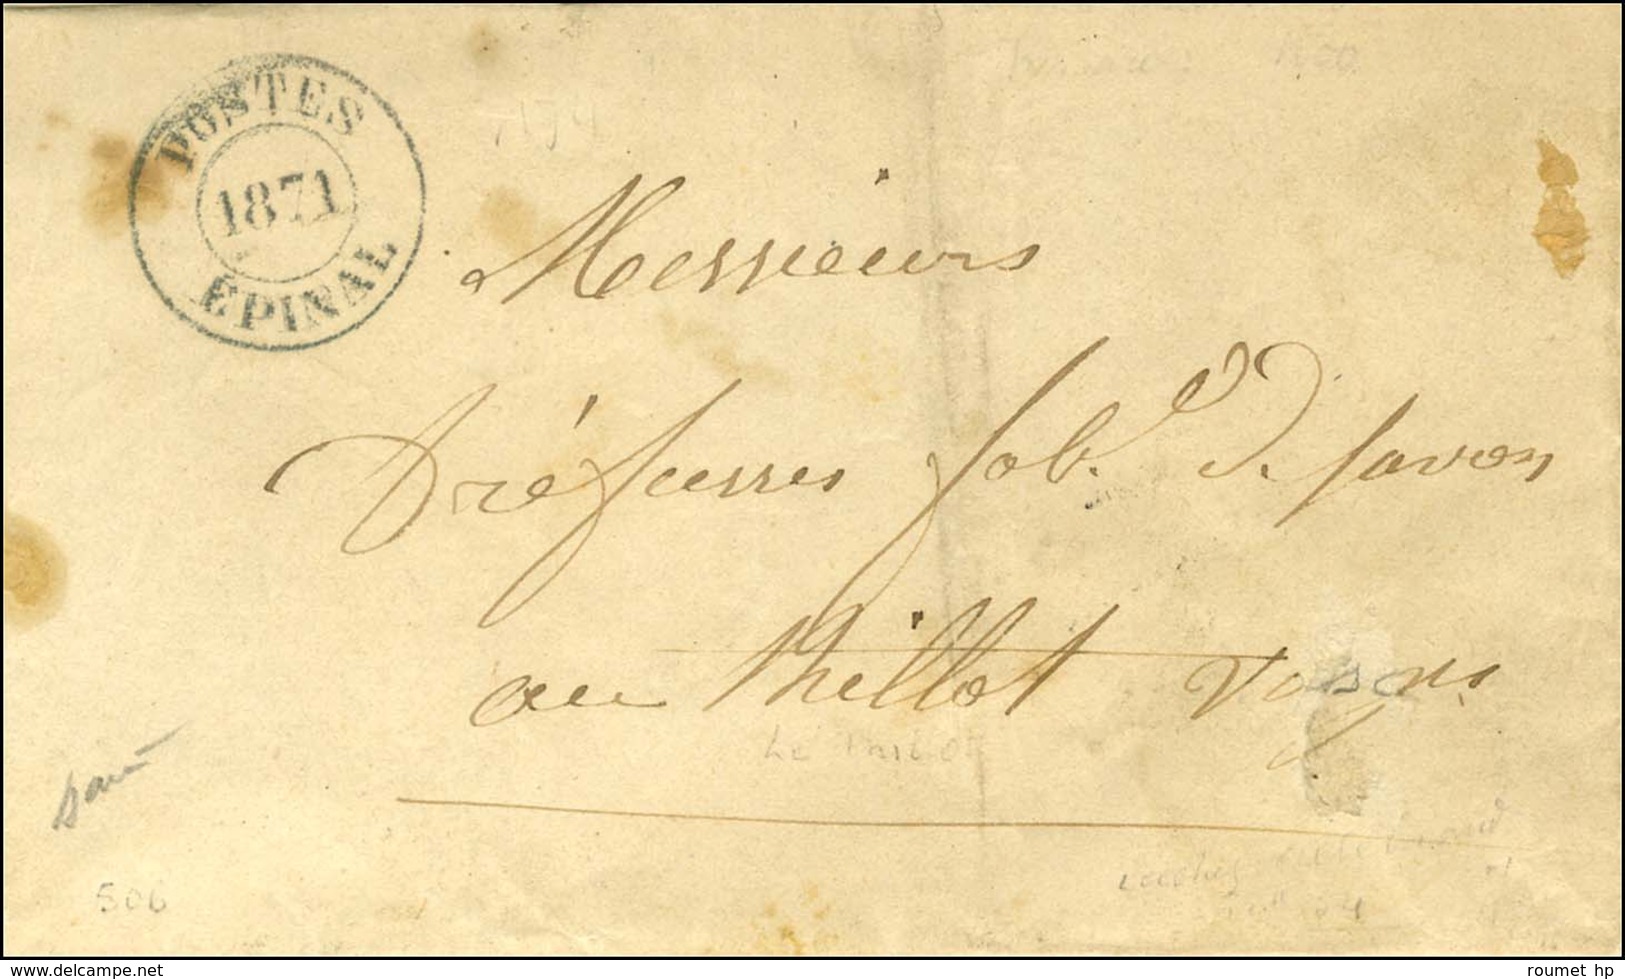 POSTES
1871
EPINAL
Messieurs
Tréfousses fab. d. savon
au thillot Vosges
Le Thillot
506
www.delcampe.net
roumet hp